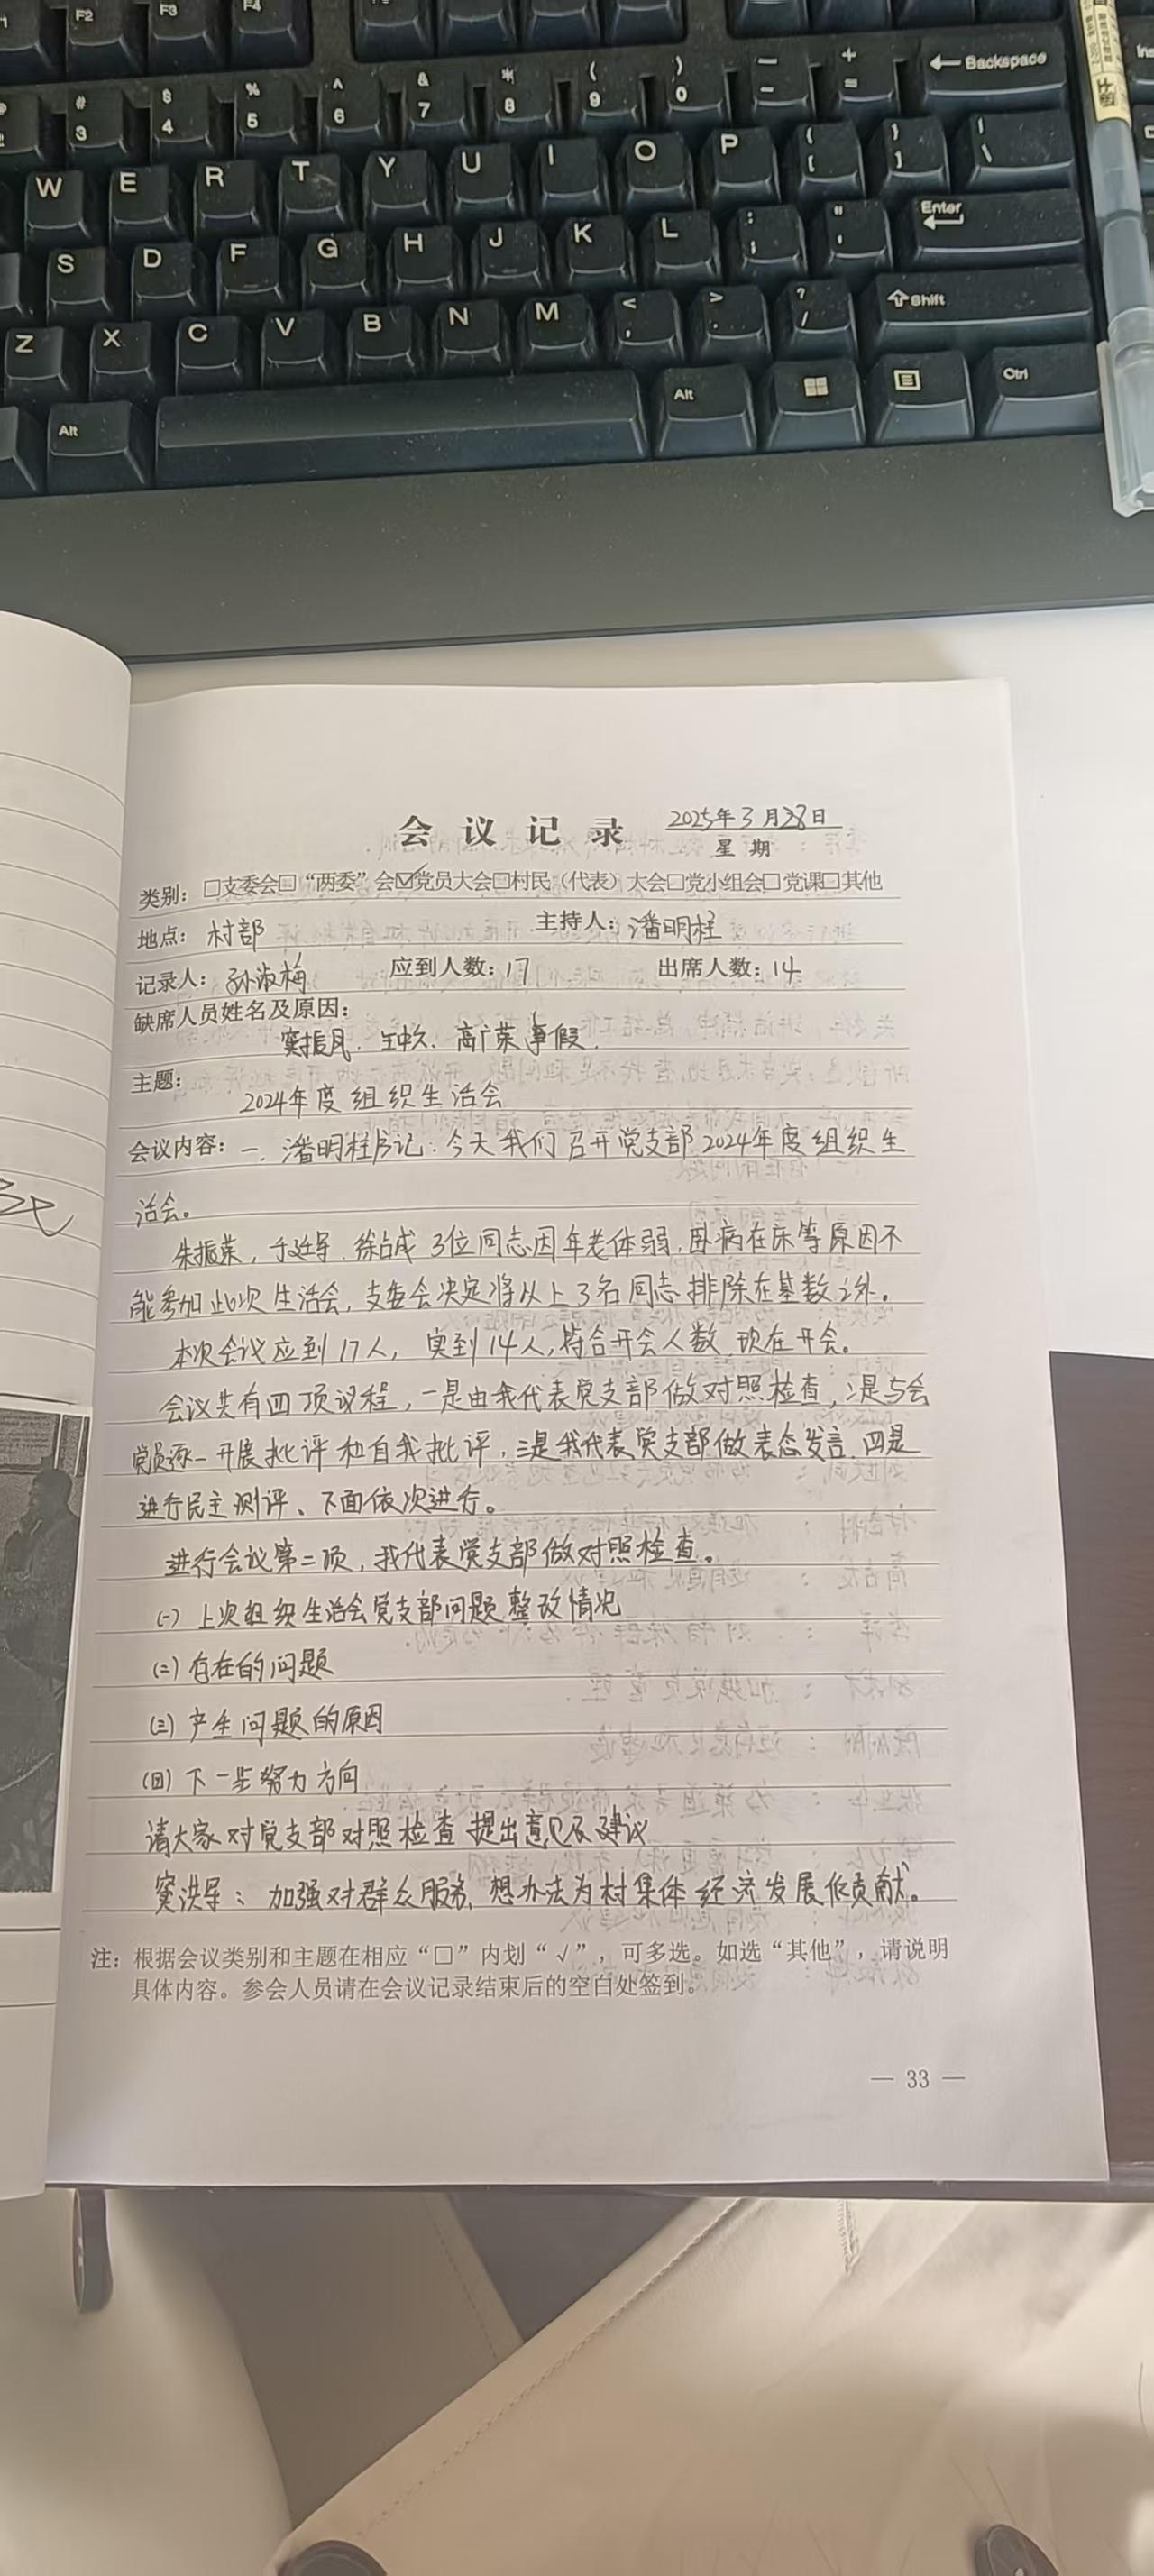 F2 F3 F4
# 3 $ 4 % 5 ^ 6 & 7 * 8 ( 9 ) 0 — - + = ← Backspace Ins
W E R T Y U I O P { [ } ] | \
S D F G H J K L : ; " ' Enter
Z X C V B N M < , > . ? / Shift
Alt Alt Ctrl
会议记录 2025年3月28日
星期
类别: □支委会□“两委”会☑党员大会□村民（代表）大会□党小组会□党课□其他
地点: 村部 主持人: 潘明柱
记录人: 孙淑梅 应到人数: 17 出席人数: 14
缺席人员姓名及原因:
窦振凤. 高广荣 事假.
主题:
2024年度组织生活会
会议内容: 一. 潘明柱书记: 今天我们召开党支部2024年度组织生
活会。
朱振荣, 于廷军. 徐占成 3位同志因年老体弱, 卧病在床等原因不
能参加此次生活会, 支委会决定将以上3名同志排除在基数之外。
本次会议应到17人, 实到14人, 符合开会人数, 现在开会。
会议共有四项议程, 一是由我代表党支部做对照检查, 二是与会
党员逐一开展批评和自我批评, 三是我代表党支部做表态发言. 四是
进行民主测评、下面依次进行。
进行会议第二项, 我代表党支部做对照检查。
(一) 上次组织生活会党支部问题整改情况
(二) 存在的问题
(三) 产生问题的原因
(四) 下一步努力方向
请大家对党支部对照检查提出意见及建议
窦洪军: 加强对群众服务, 想办法为村集体经济发展做贡献。
注: 根据会议类别和主题在相应“□”内划“√”, 可多选。如选“其他”, 请说明
具体内容。参会人员请在会议记录结束后的空白处签到。
— 33 —